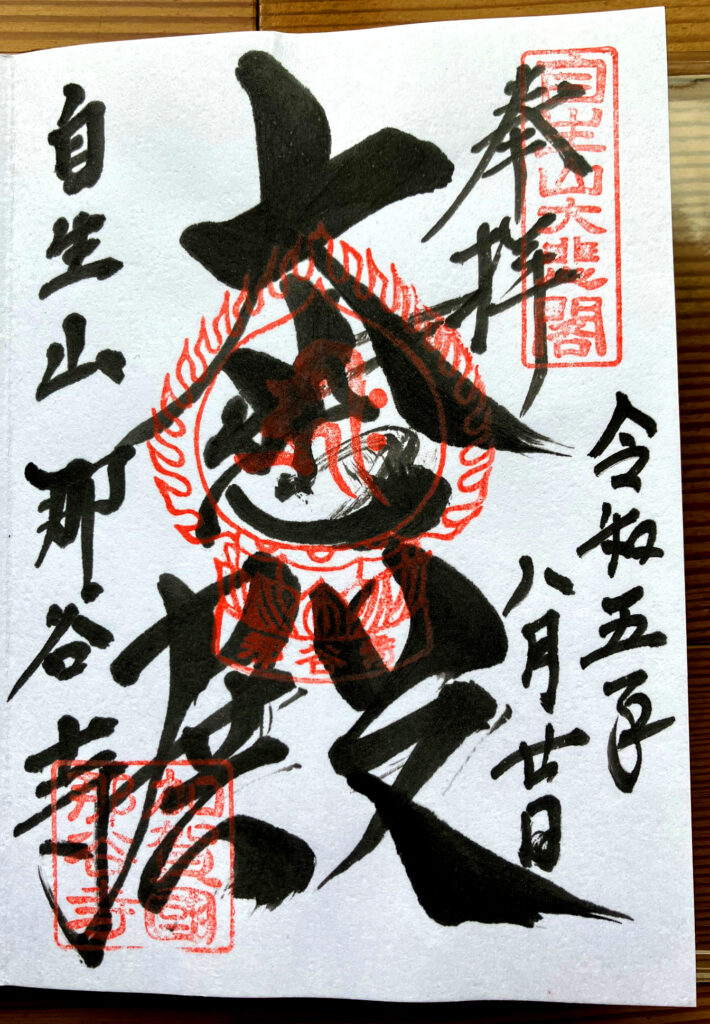 自生山大悲閣
奉拝
令和五年
八月廿日
大悲殿
那谷寺
自生山那谷寺
加賀國
那谷寺